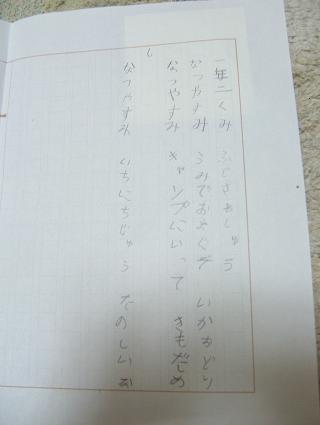 一年二くみ ふじさき しゅう
なつやすみ うみでおよぐぞ いかおどり
なつやすみ キャンプにいって きもだめ
し
なつやすみ いちにちじゅう たのしいな